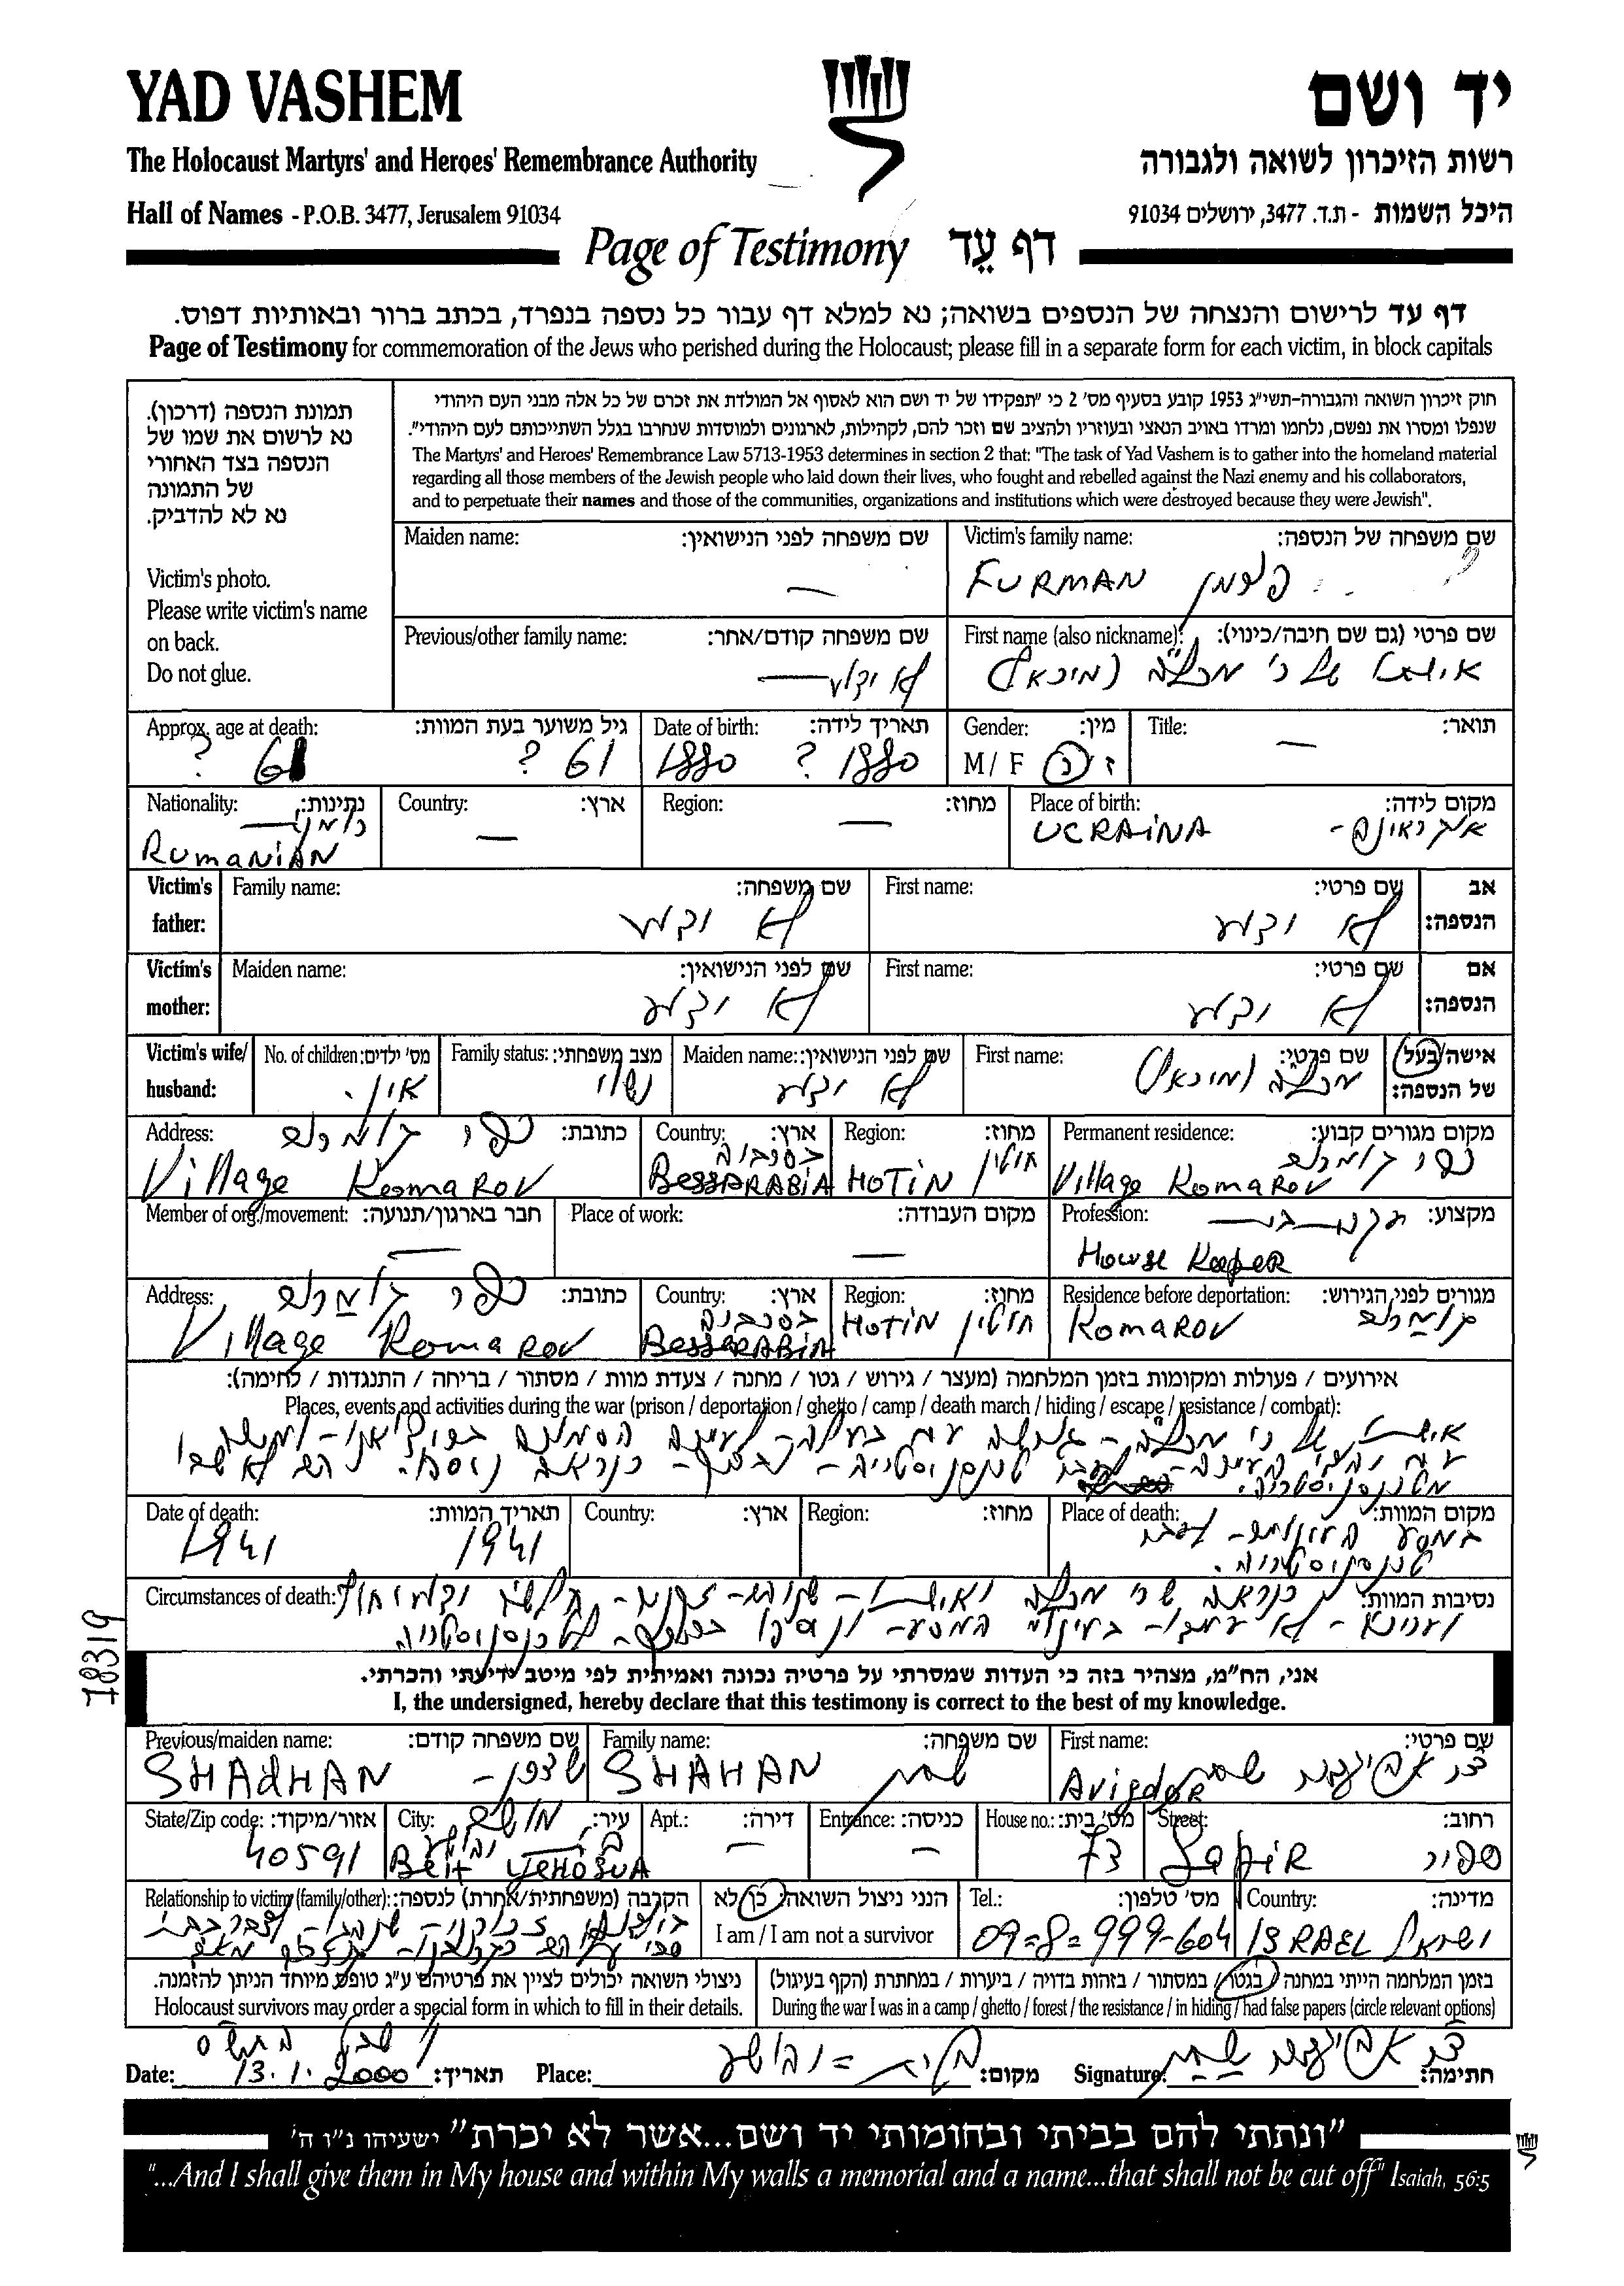 YAD VASHEM
יד ושם
The Holocaust Martyrs' and Heroes' Remembrance Authority
רשות הזיכרון לשואה ולגבורה
Hall of Names - P.O.B. 3477, Jerusalem 91034
היכל השמות - ת.ד. 3477, ירושלים 91034
Page of Testimony דף עֵד
דף עד לרישום והנצחה של הנספים בשואה; נא למלא דף עבור כל נספה בנפרד, בכתב ברור ובאותיות דפוס.
Page of Testimony for commemoration of the Jews who perished during the Holocaust; please fill in a separate form for each victim, in block capitals
תמונת הנספה (דרכון).
נא לרשום את שמו של
הנספה בצד האחורי
של התמונה
נא לא להדביק.
Victim's photo.
Please write victim's name
on back.
Do not glue.
חוק זיכרון השואה והגבורה-תשי"ג 1953 קובע בסעיף מס' 2 כי "תפקידו של יד ושם הוא לאסוף אל המולדת את זכרם של כל אלה מבני העם היהודי
שנפלו ומסרו את נפשם, נלחמו ומרדו באויב הנאצי ובעוזריו ולהציב שם וזכר להם, לקהילות, לארגונים ולמוסדות שנחרבו בגלל השתייכותם לעם היהודי".
The Martyrs' and Heroes' Remembrance Law 5713-1953 determines in section 2 that: "The task of Yad Vashem is to gather into the homeland material
regarding all those members of the Jewish people who laid down their lives, who fought and rebelled against the Nazi enemy and his collaborators,
and to perpetuate their names and those of the communities, organizations and institutions which were destroyed because they were Jewish".
Maiden name: שם משפחה לפני הנישואין:
—
Victim's family name: שם משפחה של הנספה:
FURMAN פורמן
Previous/other family name: שם משפחה קודם/אחר:
לא ידוע
First name (also nickname): שם פרטי (גם שם חיבה/כינוי):
אישתו של ר' (מיכאל)
Approx. age at death: גיל משוער בעת המוות:
? 61 ? 61
Date of birth: תאריך לידה:
1880 ? 1880
Gender: מין:
M / F ז / נ
Title: תואר:
—
Nationality: נתינות:
רומני
Rumanian
Country: ארץ:
—
Region: מחוז:
—
Place of birth: מקום לידה:
UCRAINA אוקראינה
Victim's father:
Family name: שם משפחה:
לא ידוע
First name: שם פרטי:
לא ידוע
אב הנספה:
Victim's mother:
Maiden name: שם לפני הנישואין:
לא ידוע
First name: שם פרטי:
לא ידוע
אם הנספה:
Victim's wife/ husband:
No. of children: מס' ילדים:
אין.
Family status: מצב משפחתי:
נשוי
Maiden name: שם לפני הנישואין:
לא ידוע
First name: שם פרטי:
(מיכאל)
אישה/בעל של הנספה:
Address: כתובת:
כפר קומרוב
Village Komarov
Country: ארץ:
בסרביה
BESSARABIA
Region: מחוז:
HOTIN חוטין
Permanent residence: מקום מגורים קבוע:
כפר קומרוב
Village Komarov
Member of org./movement: חבר בארגון/תנועה:
—
Place of work: מקום העבודה:
—
Profession: מקצוע:
House Keeper
Address: כתובת:
כפר קומרוב
Village Komarov
Country: ארץ:
בסרביה
BESSARABIA
Region: מחוז:
HOTIN חוטין
Residence before deportation: מגורים לפני הגירוש:
קומרוב
KOMAROV
אירועים / פעולות ומקומות בזמן המלחמה (מעצר / גירוש / גטו / מחנה / צעדת מוות / מסתור / בריחה / התנגדות / לחימה):
Places, events and activities during the war (prison / deportation / ghetto / camp / death march / hiding / escape / resistance / combat):
אישתו של ר'
Date of death: תאריך המוות:
1941 1941
Country: ארץ:
Region: מחוז:
Place of death: מקום המוות:
טרנסניסטריה.
Circumstances of death: נסיבות המוות:
78319
אני, הח"מ, מצהיר בזה כי העדות שמסרתי על פרטיה נכונה ואמיתית לפי מיטב ידיעתי והכרתי.
I, the undersigned, hereby declare that this testimony is correct to the best of my knowledge.
Previous/maiden name: שם משפחה קודם:
SHADHAN
Family name: שם משפחה:
SHAHAN שחן
First name: שם פרטי:
Avigdor ד"ר אביגדור שחן
State/Zip code: אזור/מיקוד:
40591
City: עיר:
מושב
בית יהושע
Beit YEHOSUA
Apt.: דירה:
—
Entrance: כניסה:
—
House no.: מס' בית:
73
Street: רחוב:
Sapir ספיר
Relationship to victim (family/other): הקרבה (משפחתית/אחרת) לנספה:
הנני ניצול השואה: כן/לא
I am / I am not a survivor
Tel.: מס' טלפון:
09=8=999-604
Country: מדינה:
ISRAEL ישראל
ניצולי השואה יכולים לציין את פרטיהם ע"ג טופס מיוחד הניתן להזמנה.
Holocaust survivors may order a special form in which to fill in their details.
בזמן המלחמה הייתי במחנה / בגטו / במסתור / בזהות בדויה / ביערות / במחתרת (הקף בעיגול)
During the war I was in a camp / ghetto / forest / the resistance / in hiding / had false papers (circle relevant options)
Date: 13.1.2000 תאריך:
Place: בית יהושע מקום:
Signature: ד"ר אביגדור שחן חתימה:
"ונתתי להם בביתי ובחומותי יד ושם...אשר לא יכרת" ישעיהו נ"ו ה'
"...And I shall give them in My house and within My walls a memorial and a name...that shall not be cut off" Isaiah, 56:5